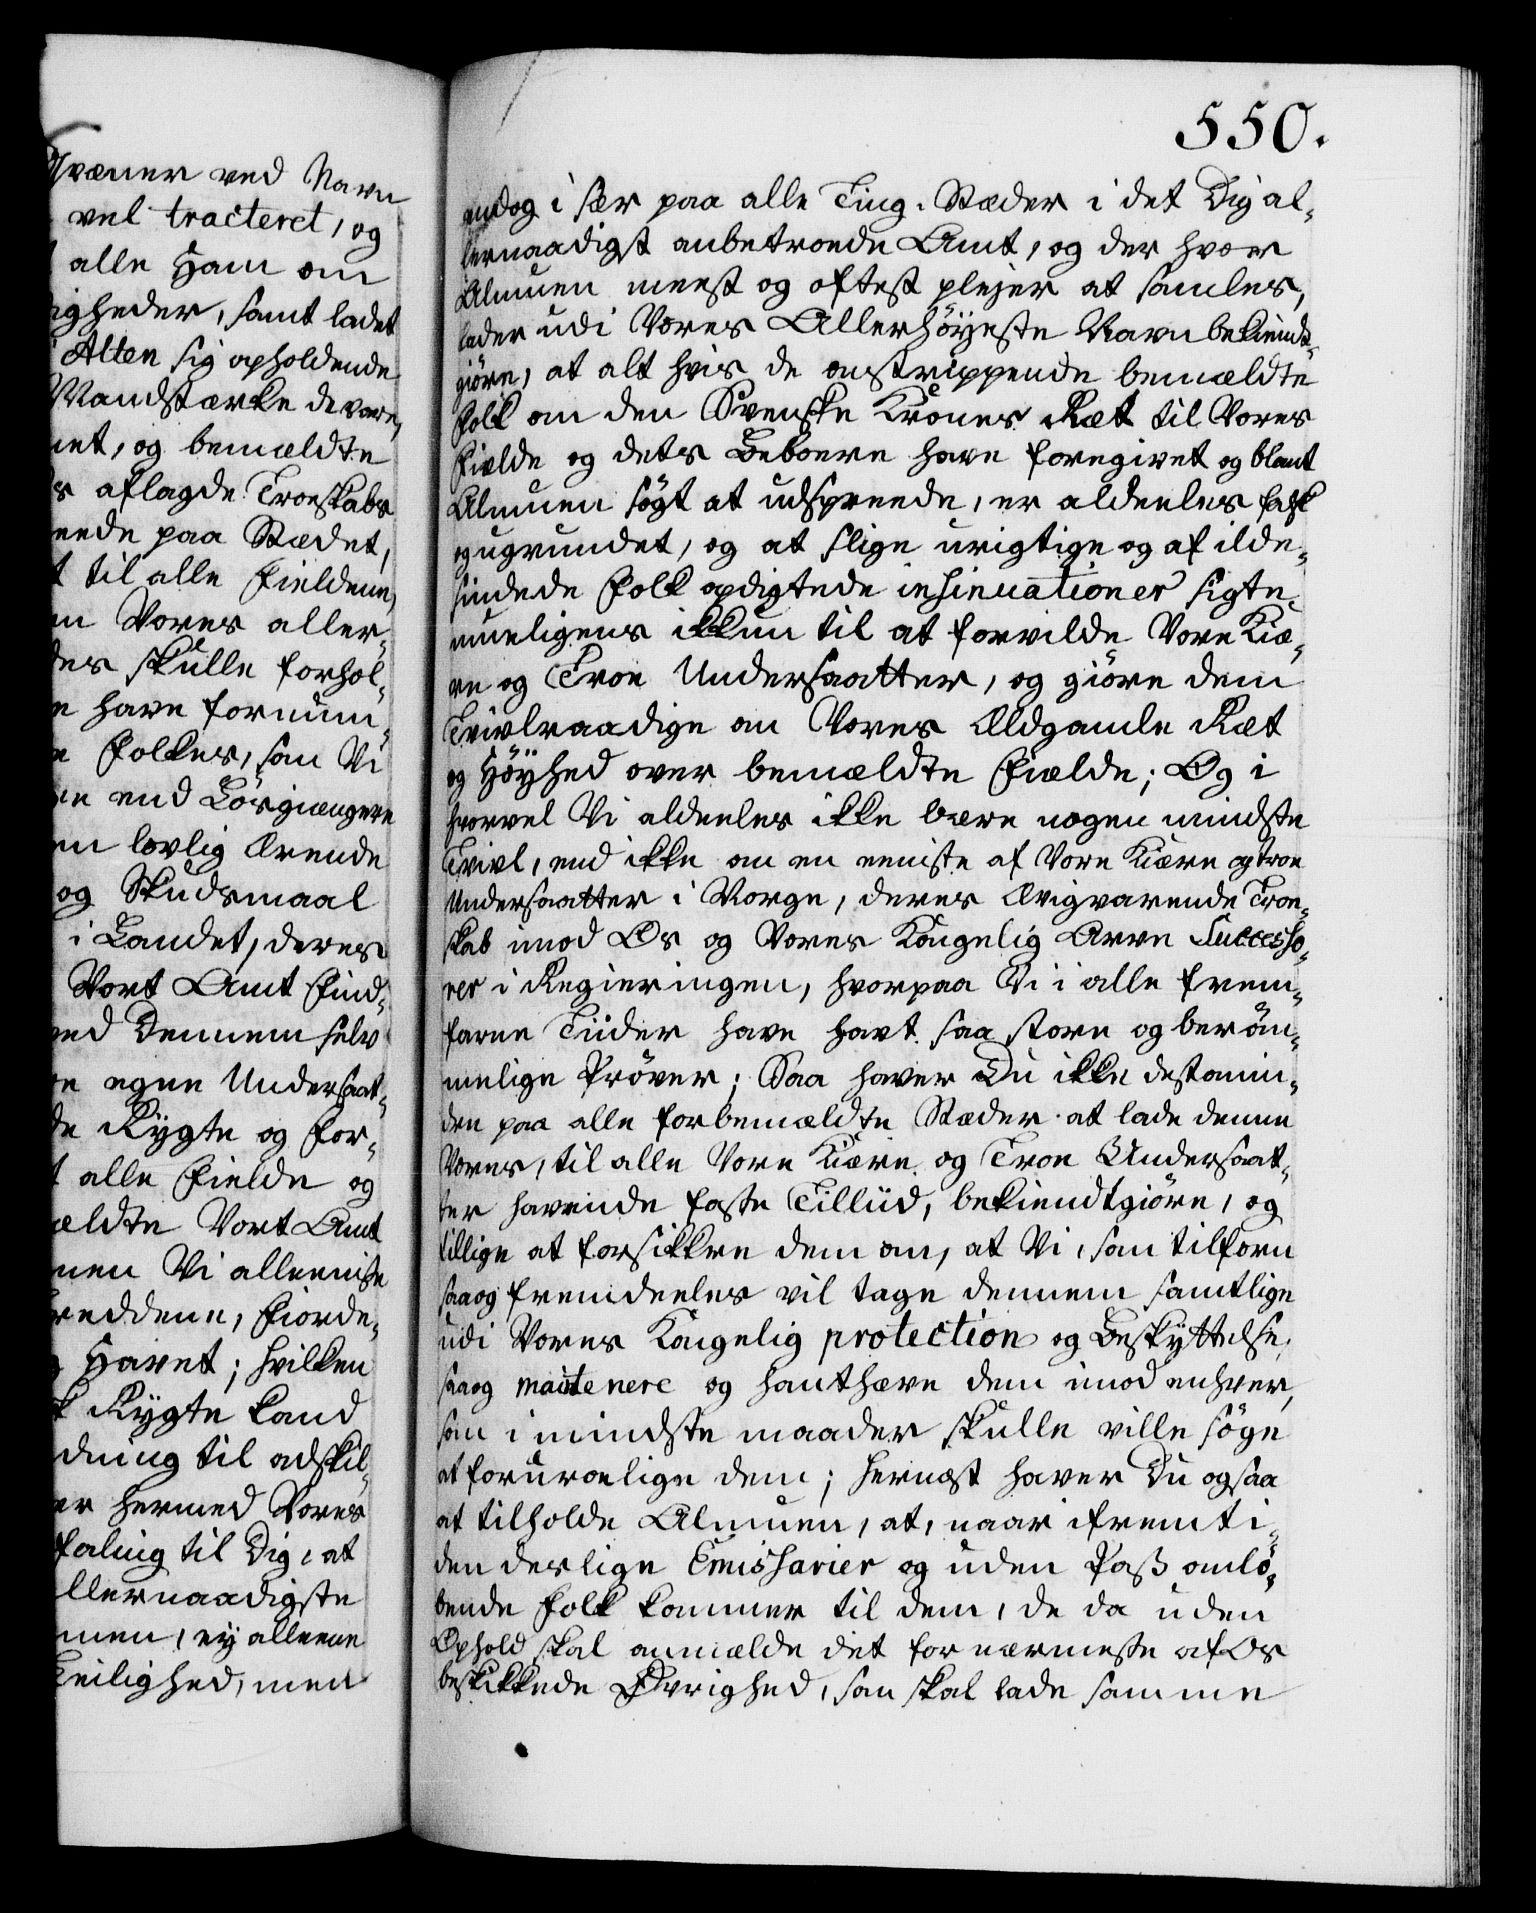 qvæner ved Navn
vel tracteret, og
alle Ham om
igheder, samt ladet
Alten sig opholdende
Mandstærke de vare,
net, og bemældte
s aflagde Troeskabs
eede paa Stædet,
t til alle Fieldene,
en Vores aller-
des skulle forhol-
e have fornum-
e Folkes, som Vi
re end Løsgiængere
en lovlig Ærende
og Skudsmaal
i Landet, deres
Vort Amt Find-
ved Dennem selv
re egne Undersaat-
de Rygte og For-
t alle Fielde og
ældte Vort Amt
men Vi alleeniste
reddene, Fiorde-
g Havet; hvilken
k Rygte kand
dning til adskil-
er hermed Vores
faling til Dig, at
llernaadigste
men, ey alleene
Leilighed, men
550.
endog i sær paa alle Ting-Stæder i det Dig al-
lernaadigst anbetroede Amt, og der hvor
Almuen meest og oftest plejer at samles,
lader udi Vores Allerhöyeste Navn bekiendt-
giöre, at alt hvis de omstrippende bemældte
Folk om den Svenske Krones Ræt til Vores
Fielde og dets Beboere have foregivet og blant
Almuen sögt at udspreede, er aldeeles falsk
og ugrundet, og at slige urigtige og af ilde-
sindede Folk opdigtede insinuationer sigte
mueligens ikkun til at forvilde Vore Kiæ-
re og Troe Undersaatter, og giöre dem
Tvivlraadige om Vores Ældgamle Ræt
og Höyhed over bemældte Fielde; Og i
hvorvel Vi aldeeles ikke bære nogen mindste
Tvivl, end ikke om en eeniste af Vore Kiære og troe
Undersaatter i Norge, deres Ævigvarende Troe-
skab imod Os og Vores Kongelig Arve Successo-
rer i Regieringen, hvorpaa Vi i alle frem-
farne Tiider have havt saa store og beröm-
melige Pröver; Saa haver Du ikke destomin-
dre paa alle forbemældte Stæder at lade denne
Vores, til alle Vore Kiære og Troe Undersaat-
ter havende faste Tilliid, bekiendtgiöre, og
tillige at forsikkre dem om, at Vi, som tilforn
saa og fremdeeles vil tage dennem samtlige
udi Vores Kongelig protection og Beskyttelse,
saa og maitenere og hanthæve dem imod enhver,
som i mindste maader skulle ville söge
at foruroelige dem; hernæst haver Du ogsaa
at tilholde Almuen, at, naar i fremti-
den deslige Emissarier og uden Pass omlö-
bende Folk kommer til dem, de da uden
Ophold skal anmælde det for nærmeste af Os
beskikkede Øvrighed, som skal lade samme